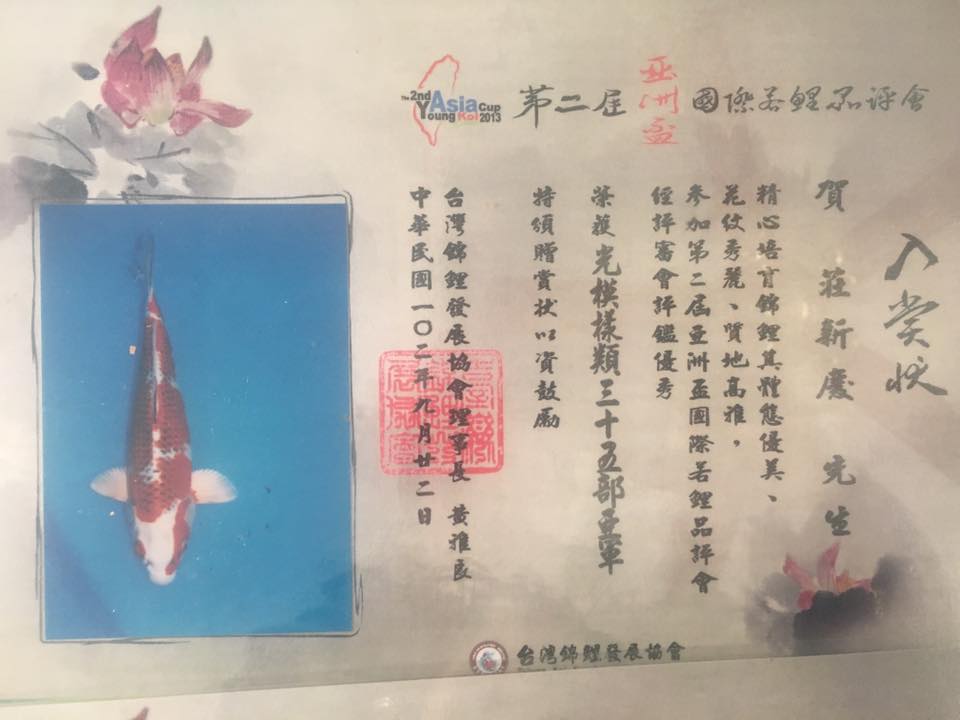 The 2nd
Asia Cup
Young Koi 2013
第二屆亞洲盃國際若鯉品評會
入賞狀
賀 莊新慶 先生
精心培育錦鯉其體態優美、
花紋秀麗、質地高雅，
參加第二屆亞洲盃國際若鯉品評會
經評審會評鑑優秀
榮獲光模樣類三十五部亞軍
特頒贈賞狀以資鼓勵
台灣錦鯉發展協會理事長 黃雅良
中華民國一〇二年九月廿二日
台灣錦鯉發展協會